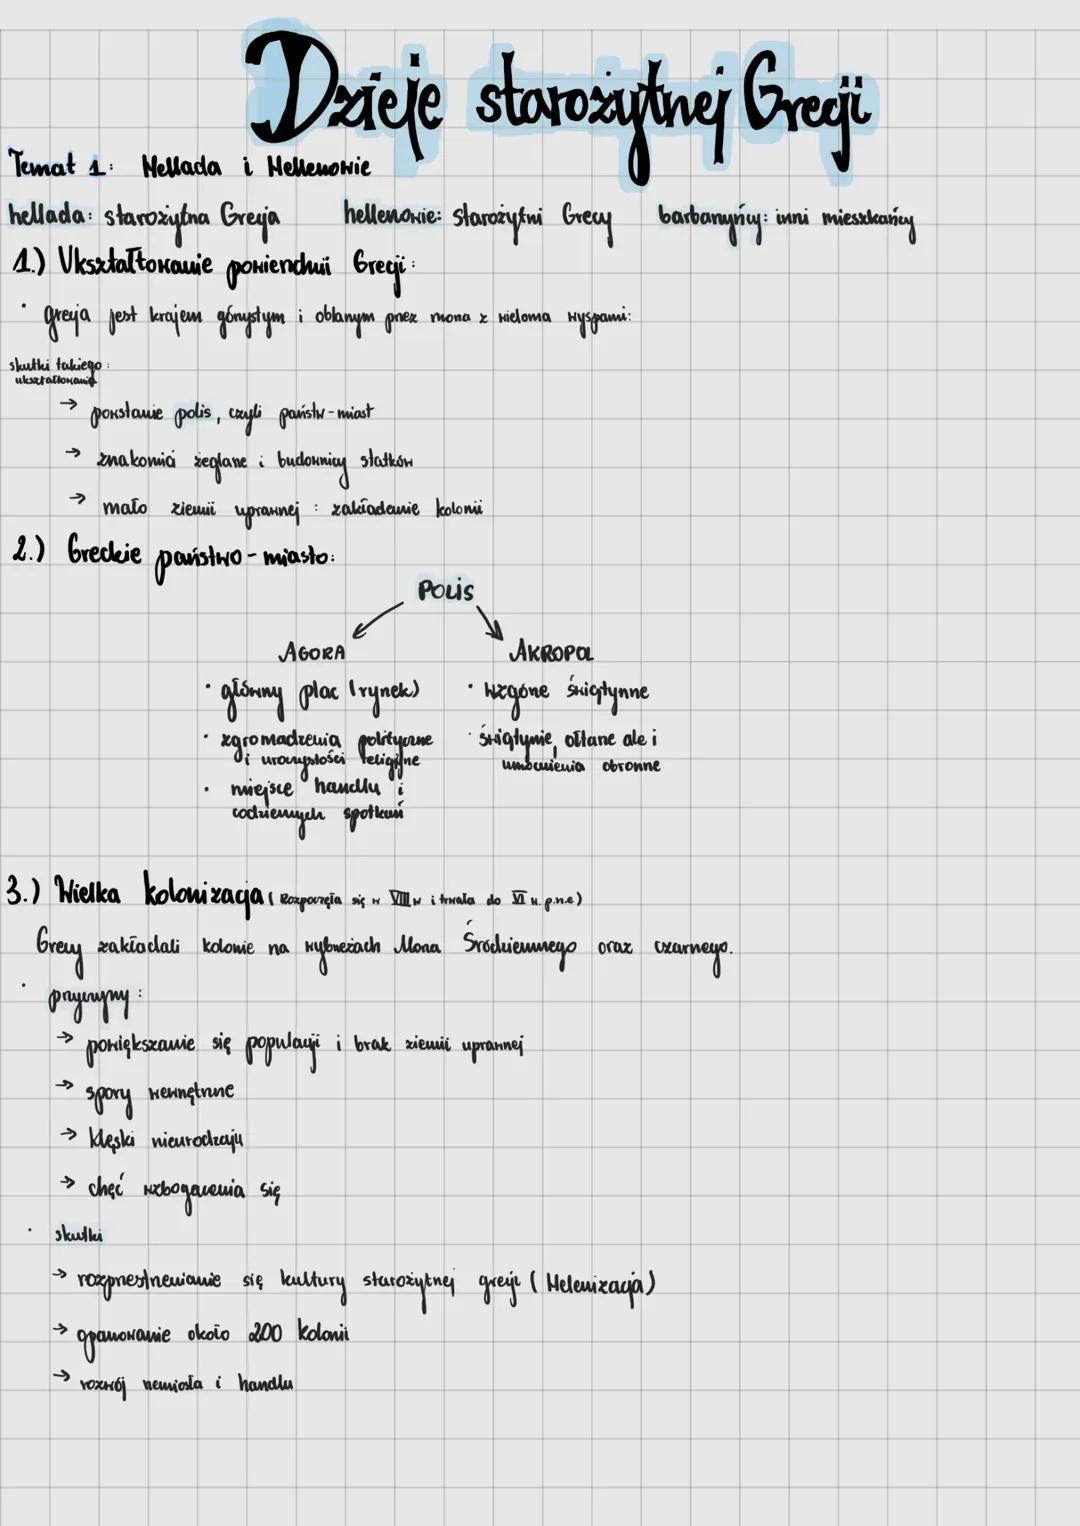 Dzieje starożytnej Grecji
Temat 1: Hellada i Hellenowie
hellada: starożytna Grecja hellenowie: starożytni Grecy barbarzyńcy: inni mieszkańcy
1.) Ukształtowanie powierzchnii Grecji:
· grecja jest krajem górzystym i oblanym przez morza z wieloma wyspami:
skutki takiego:
ukształtowania
→ powstanie polis, czyli państw-miast
→ znakomici żeglarze i budowniczy statków
→ mało ziemii uprawnej : zakładanie kolonii
2.) Greckie państwo-miasto:
POLIS
AGORA AKROPOL
· główny plac (rynek) · wzgórze świątynne
· zgromadzenia polityczne · świątynie, ołtarze ale i
i uroczystości religijne umocnienia obronne
· miejsce handlu i
codziennych spotkań
3.) Wielka kolonizacja (Rozpoczęła się w VIII w i trwała do VI w. p.n.e)
Grecy zakładali kolonie na wybrzeżach Morza Śródziemnego oraz czarnego.
· przyczyny:
→ powiększanie się populacji i brak ziemii uprawnej
→ spory wewnętrzne
→ klęski nieurodzaju
→ chęć wzbogacenia się
· skutki
→ rozprzestrzenianie się kultury starożytnej grecji (Helenizacja)
→ opanowanie około 200 kolonii
→ rozwój rzemiosła i handlu